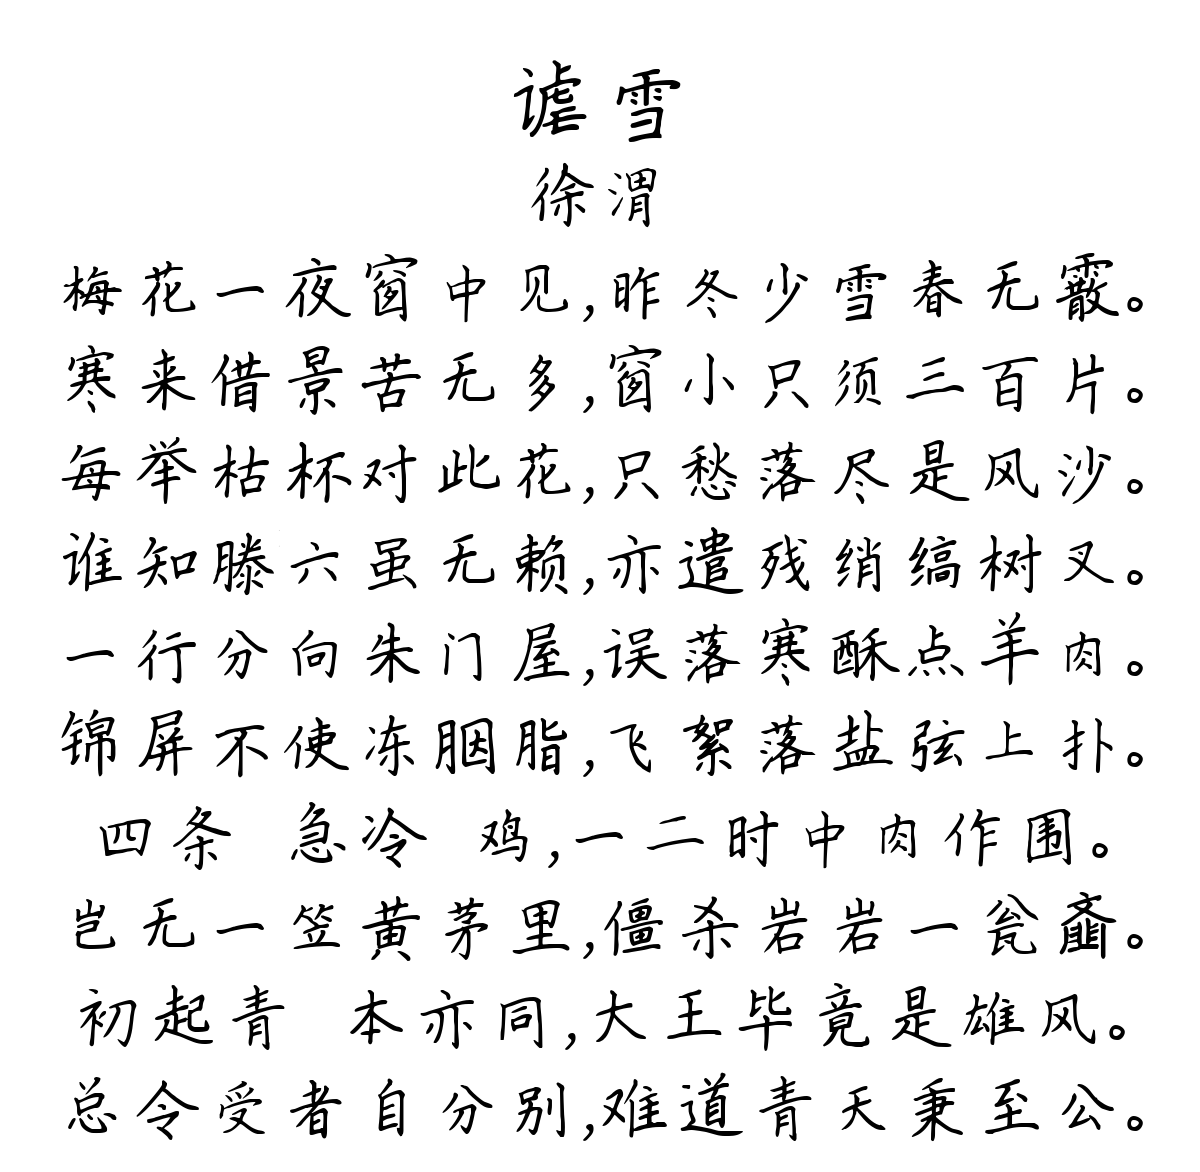 谑雪
徐渭
梅花一夜窗中见,昨冬少雪春无霰。
寒来借景苦无多,窗小只须三百片。
每举枯杯对此花,只愁落尽是风沙。
谁知滕六虽无赖,亦遣残绡缟树叉。
一行分向朱门屋,误落寒酥点羊肉。
锦屏不使冻胭脂,飞絮落盐弦上扑。
四条 急冷 鸡,一二时中肉作围。
岂无一笠黄茅里,僵杀岩岩一瓮齑。
初起青 本亦同,大王毕竟是雄风。
总令受者自分别,难道青天秉至公。